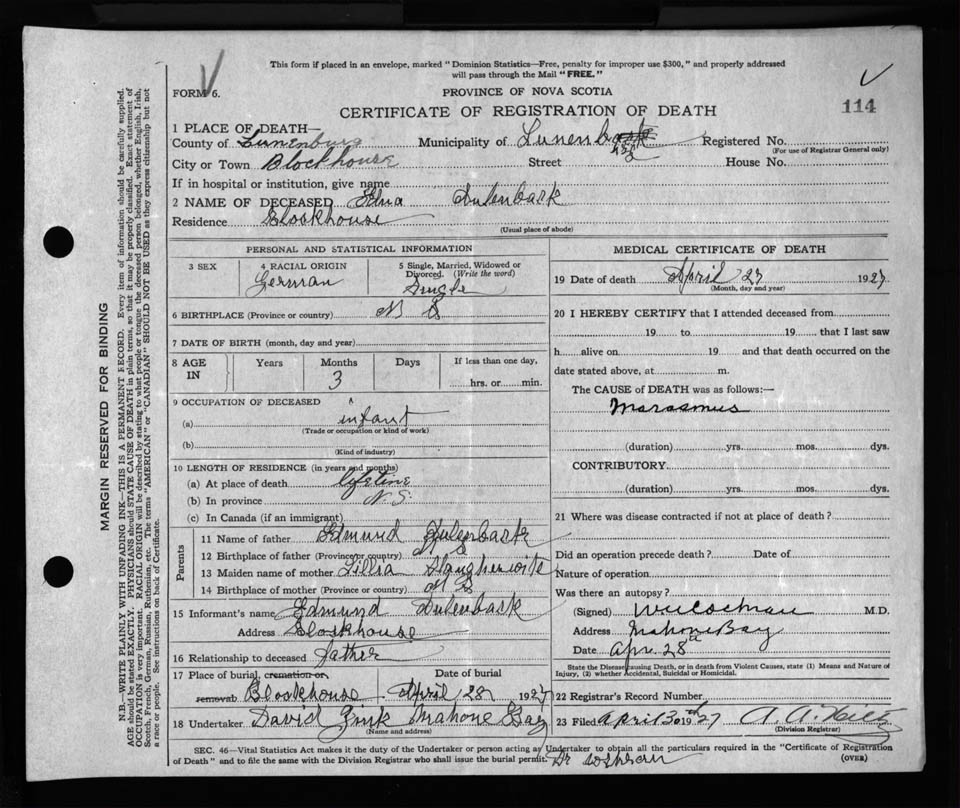 This form if placed in an envelope, marked "Dominion Statistics—Free, penalty for improper use $300," and properly addressed
will pass through the Mail "FREE."
FORM 6.
PROVINCE OF NOVA SCOTIA
CERTIFICATE OF REGISTRATION OF DEATH
114
1 PLACE OF DEATH—
County of Lunenburg Municipality of Lunenb Registered No.
(For use of Registrar General only)
City or Town Blockhouse Street House No.
If in hospital or institution, give name
2 NAME OF DECEASED Edna Aulenback
Residence Blockhouse
(Usual place of abode)
PERSONAL AND STATISTICAL INFORMATION
3 SEX
4 RACIAL ORIGIN
German
5 Single, Married, Widowed or
Divorced. (Write the word)
Single
6 BIRTHPLACE (Province or country) N S
7 DATE OF BIRTH (month, day and year)
8 AGE IN Years Months Days If less than one day,
3 hrs. or min.
9 OCCUPATION OF DECEASED
(a) infant
(Trade or occupation or kind of work)
(b)
(Kind of industry)
10 LENGTH OF RESIDENCE (in years and months)
(a) At place of death lifetime
(b) In province N.S.
(c) In Canada (if an immigrant)
Parents
11 Name of father Edmund Aulenback
12 Birthplace of father (Province or country) N S
13 Maiden name of mother Lillia
14 Birthplace of mother (Province or country) N S
15 Informant's name Edmund Aulenback
Address Blockhouse
16 Relationship to deceased father
17 Place of burial, cremation or Date of burial
removab Blockhouse April 28 1927
18 Undertaker David Zink Mahone Bay
(Name and address)
MEDICAL CERTIFICATE OF DEATH
19 Date of death April 27 1927
(Month, day and year)
20 I HEREBY CERTIFY that I attended deceased from
19 to 19 that I last saw
h alive on 19 and that death occurred on the
date stated above, at m.
The CAUSE of DEATH was as follows:—
Marasmus
(duration) yrs. mos. dys.
CONTRIBUTORY
(duration) yrs. mos. dys.
21 Where was disease contracted if not at place of death?
Did an operation precede death? Date of
Nature of operation
Was there an autopsy?
(Signed) W Cochran M.D.
Address Mahone Bay
Date Apr. 28
State the Disease causing Death, or in death from Violent Causes, state (1) Means and Nature of
Injury, (2) whether Accidental, Suicidal or Homicidal.
22 Registrar's Record Number
23 Filed April 30 1927
(Division Registrar)
SEC. 46—Vital Statistics Act makes it the duty of the Undertaker or person acting as Undertaker to obtain all the particulars required in the "Certificate of Registration
of Death" and to file the same with the Division Registrar who shall issue the burial permit. Dr Cochran
(OVER)
MARGIN RESERVED FOR BINDING
N.B.—WRITE PLAINLY WITH UNFADING INK—THIS IS A PERMANENT RECORD. Every item of information should be carefully supplied.
AGE should be stated EXACTLY. PHYSICIANS should STATE CAUSE OF DEATH in plain terms, so that it may be properly classified. Exact statement of
OCCUPATION is very important. RACIAL ORIGIN will be described by stating to what people or tongue the deceased person belonged, whether English, Irish,
Scotch, French, German, Russian, Ruthenian, etc. The terms "AMERICAN" or "CANADIAN" SHOULD NOT BE USED as they express citizenship but not
a race or people. See instructions on back of Certificate.